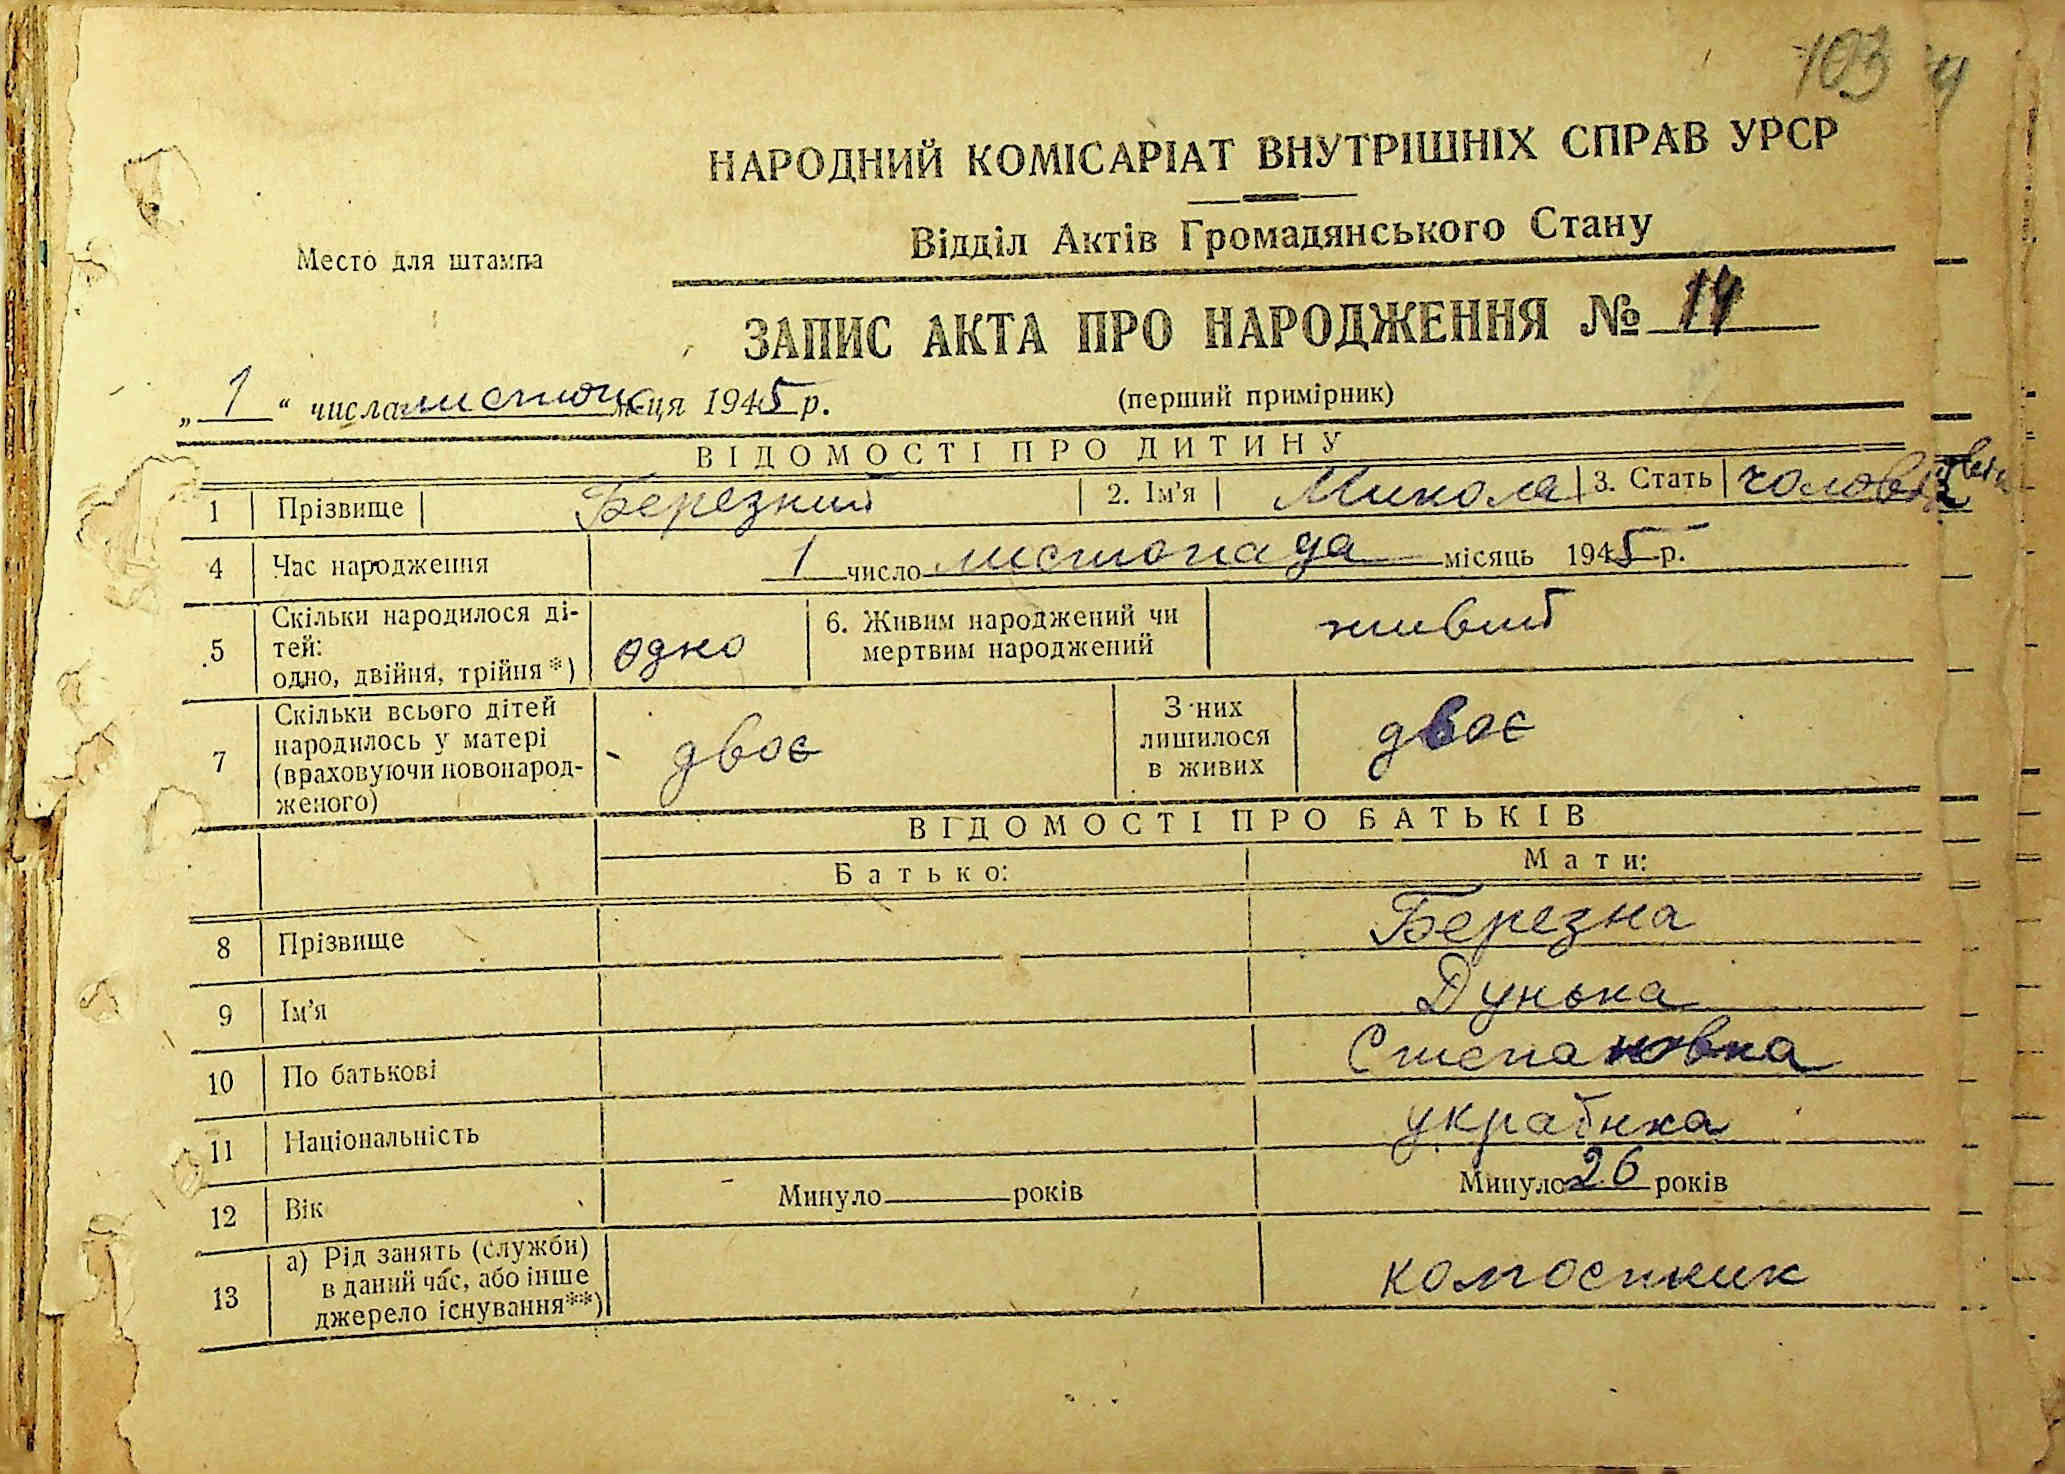 103
НАРОДНИЙ КОМІСАРІАТ ВНУТРІШНІХ СПРАВ УРСР
Відділ Актів Громадянського Стану
Место для штампа
ЗАПИС АКТА ПРО НАРОДЖЕННЯ № 14
„ 1 “ числа листоп м-ця 1945 р.
(перший примірник)
ВІДОМОСТІ ПРО ДИТИНУ
1 Прізвище Березний 2. Ім'я Микола 3. Стать
4 Час народження 1 число листопада місяць 1945 р.
5 Скільки народилося ді-
тей:
одно, двійня, трійня *) одно 6. Живим народжений чи
мертвим народжений живий
7 Скільки всього дітей
народилось у матері
(враховуючи новонарод-
женого) двоє З них
лишилося
в живих двоє
ВІДОМОСТІ ПРО БАТЬКІВ
Батько: Мати:
8 Прізвище Березна
9 Ім'я Дунька
10 По батькові Степановна
11 Національність українка
12 Вік Минуло років Минуло 26 років
13 а) Рід занять (служби)
в даний час, або інше
джерело існування**)